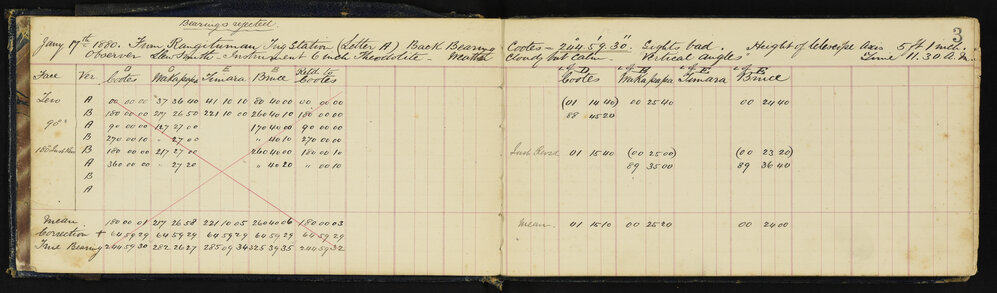 Bearings rejected
3
Jany 17th 1880. From Rangitumau Trig Station (Letter A) Back Bearing Cootes = 244° 59' 30" Lights bad. Height of telescope axis 5 ft 1 inch.
Observer Llew Smith - Instrument 6 inch Theodolite. Weather Cloudy but Calm. Vertical angles Time 11.30 A.M.
Face Ver. Cootes Wakapapa Timara Bruce Refd. to Cootes Cootes Wakapapa Timara Bruce
Zero A 00 00 00 37 36 40 41 10 10 80 40 00 00 00 00 (01 14 40) 00 25 40 00 24 40
B 180 00 00 217 26 50 221 10 00 260 40 10 180 00 00 88 45 20
90° A 90 00 00 127 27 00 170 40 00 90 00 00
B 270 00 10 " 27 00 " 40 10 270 00 00
B 180 00 00 217 27 00 260 40 00 180 00 10 Inst Revsd 01 15 40 (00 25 00) (00 23 20)
A 360 00 00 " 27 20 " 40 20 " 00 10 89 35 00 89 36 40
B
A
Mean 180 00 01 217 26 58 221 10 05 260 40 06 180 00 03 Mean 01 15 10 00 25 20 00 24 00
Correction + 64 59 29 64 59 29 64 59 29 64 59 29 64 59 29
True Bearing 244 59 30 282 26 27 285 09 34 325 39 35 244 59 32